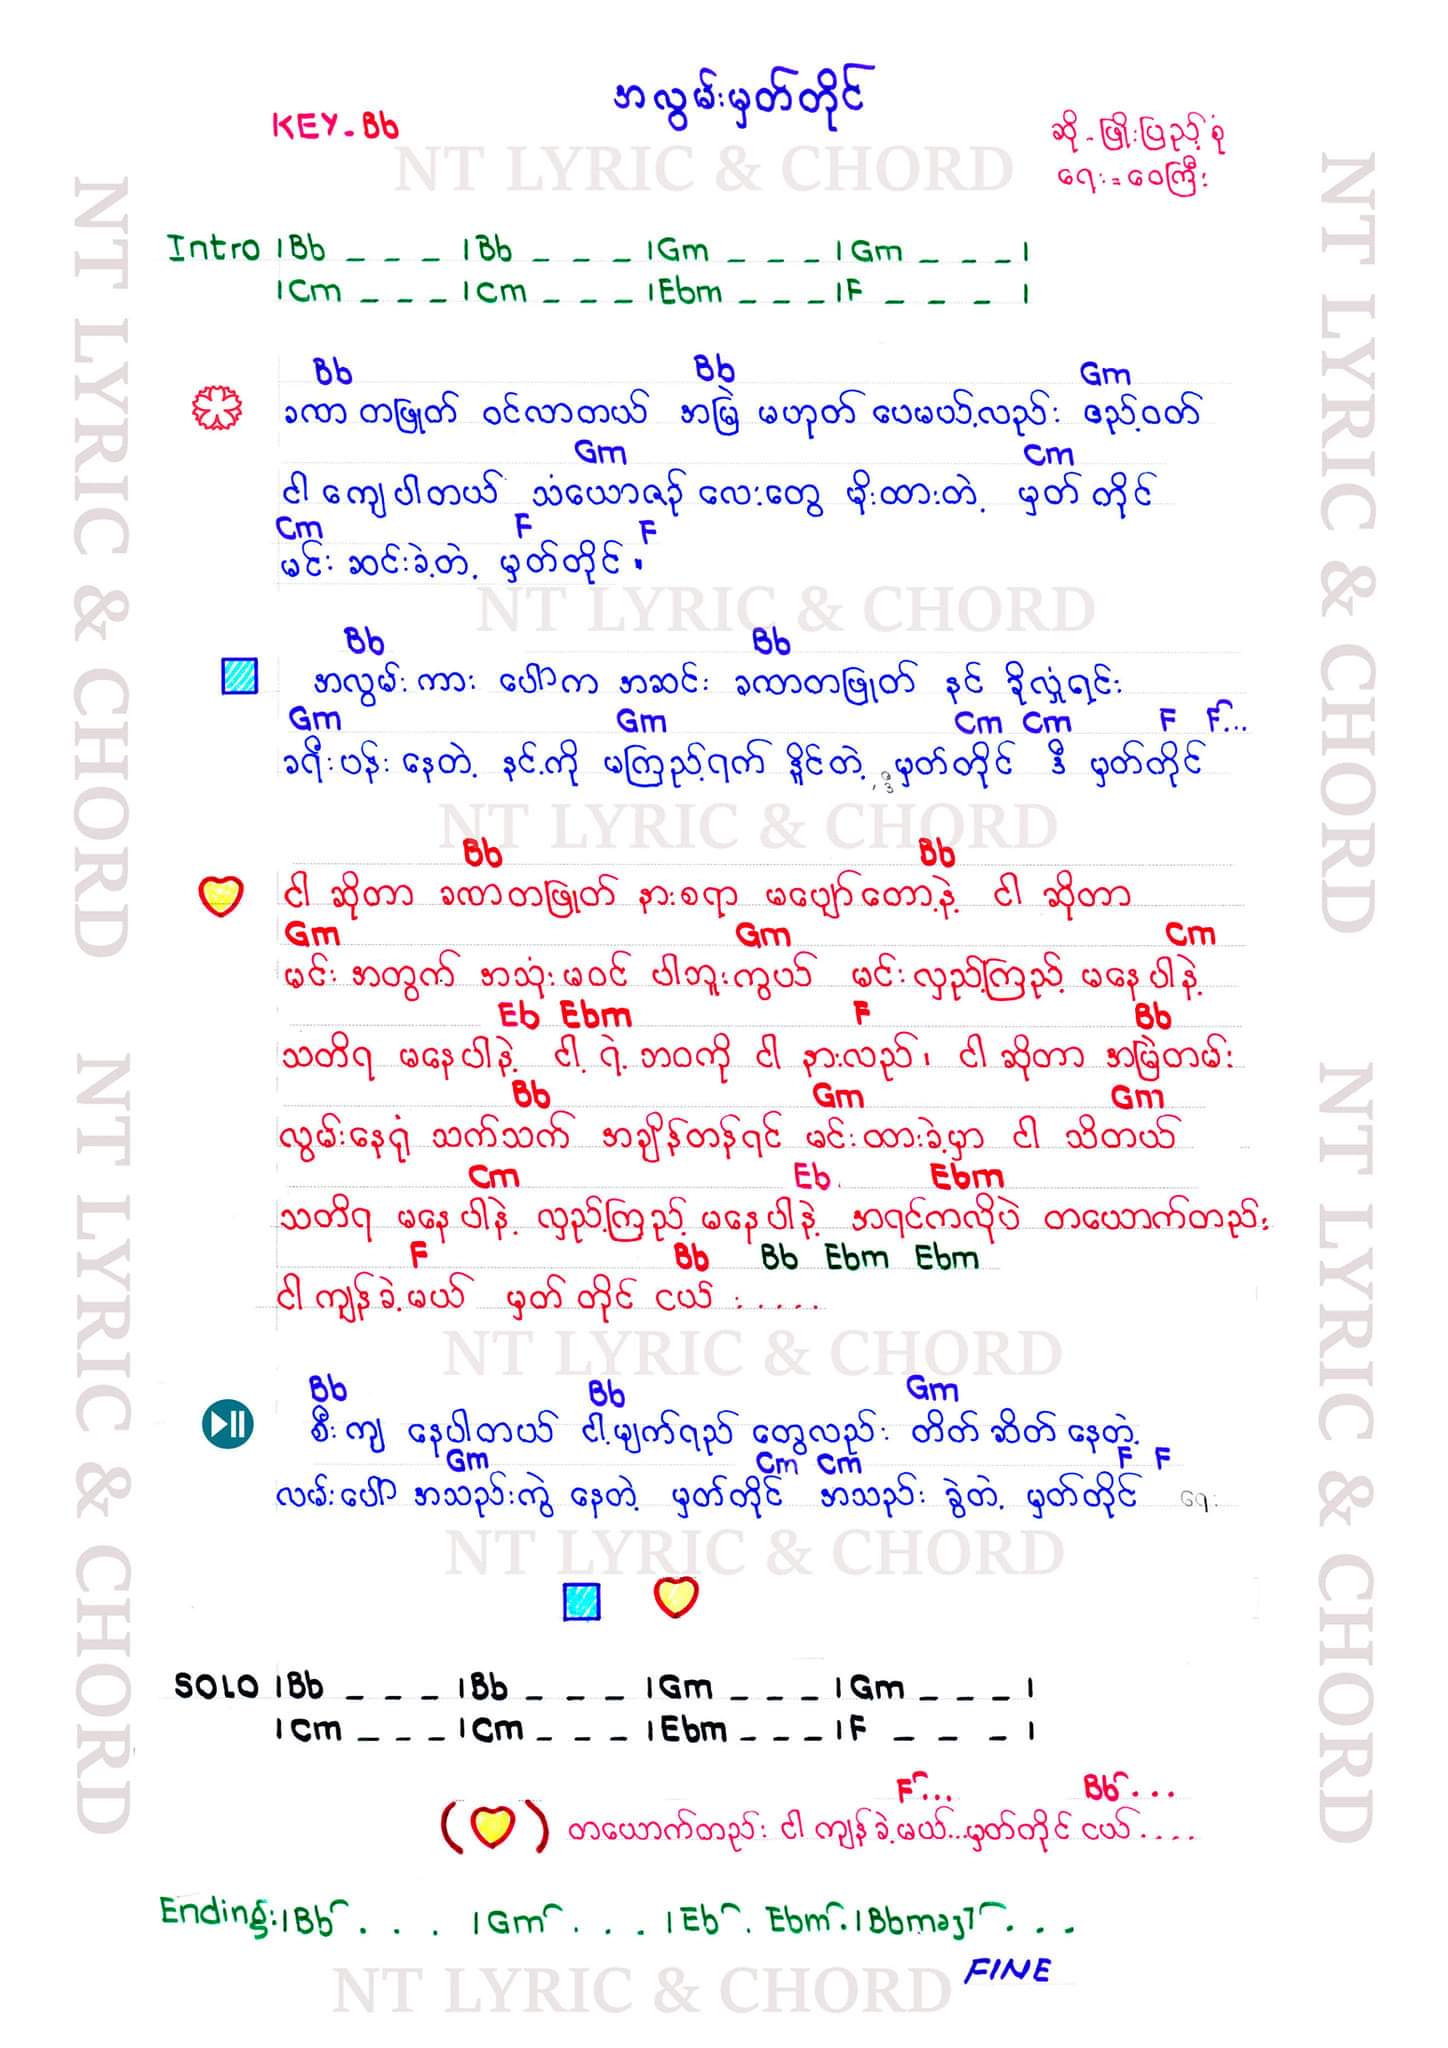 အလွမ်းမှတ်တိုင်
KEY-Bb
ဆို - ဖြိုးပြည့်စုံ
ရေး = ဝေကြီး
NT LYRIC & CHORD
Intro |Bb _ _ _ |Bb _ _ _ |Gm _ _ _ |Gm _ _ _|
|Cm _ _ _|Cm _ _ _|Ebm _ _ _|F _ _ _ |
Bb Bb Gm
ခဏ တဖြုတ် ဝင်လာတယ် အမြဲ မဟုတ် ပေမယ့်လည်း ဧည့်ဝတ်
Gm Cm
ငါ ကျေပါတယ် သံယောဇဉ် လေးတွေ မိုးထားတဲ့ မှတ်တိုင်
Cm F F
မင်း ဆင်းခဲ့တဲ့ မှတ်တိုင်။
NT LYRIC & CHORD
Bb Bb
အလွမ်း ကား ပေါ်က အဆင်း ခဏတဖြုတ် နင် ခိုလှုံရင်း
Gm Gm Cm Cm F F...
ခရီးပန်း နေတဲ့ နင့်ကို မကြည့်ရက် နိူင်တဲ့ ,ဒီ မှတ်တိုင် ဒီ မှတ်တိုင်
NT LYRIC & CHORD
Bb Bb
ငါ ဆိုတာ ခဏတဖြုတ် နားစရာ မပျော်တော့နဲ့ ငါ ဆိုတာ
Gm Gm Cm
မင်း အတွက် အသုံးမဝင် ပါဘူးကွယ် မင်းလှည့်ကြည့် မနေပါနဲ့
Eb Ebm F Bb
သတိရ မနေပါနဲ့ ငါ့ ရဲ့ ဘဝကို ငါ နားလည်၊ ငါ ဆိုတာ အမြဲတမ်း
Bb Gm Gm
လွမ်းနေရုံ သက်သက် အချိန်တန်ရင် မင်းထားခဲ့မှာ ငါ သိတယ်
Cm Eb Ebm
သတိရ မနေပါနဲ့ လှည့်ကြည့် မနေပါနဲ့ အရင်ကလိုပဲ တယောက်တည်း
F Bb Bb Ebm Ebm
ငါ ကျန်ခဲ့မယ် မှတ်တိုင် ငယ် : . . . . .
NT LYRIC & CHORD
Bb Bb Gm
စီးကျ နေပါတယ် ငါ့မျက်ရည် တွေလည်း တိတ်ဆိတ်နေတဲ့
Gm Cm Cm F F
လမ်းပေါ် အသည်းကွဲ နေတဲ့ မှတ်တိုင် အသည်း ခွဲတဲ့ မှတ်တိုင် ရေး
NT LYRIC & CHORD
SOLO |Bb _ _ _ |Bb _ _ _ |Gm _ _ _ |Gm _ _ _ |
|Cm _ _ _ |Cm _ _ _ |Ebm _ _ _ |F _ _ _ |
F... Bb...
( ) တယောက်တည်း ငါ ကျန်ခဲ့မယ်...မှတ်တိုင် ငယ် . . . .
Ending:|Bb . . . |Gm . . . |Eb . Ebm . |Bbmaj7 . . .
FINE
NT LYRIC & CHORD
NT LYRIC & CHORD
NT LYRIC & CHORD
NT LYRIC & CHORD
NT LYRIC & CHORD